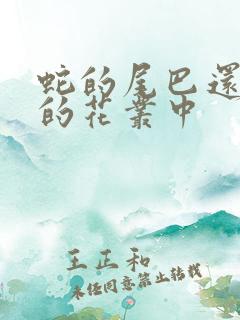 蛇的尾巴還
的花叢中
王正和
未經同意禁止轉載